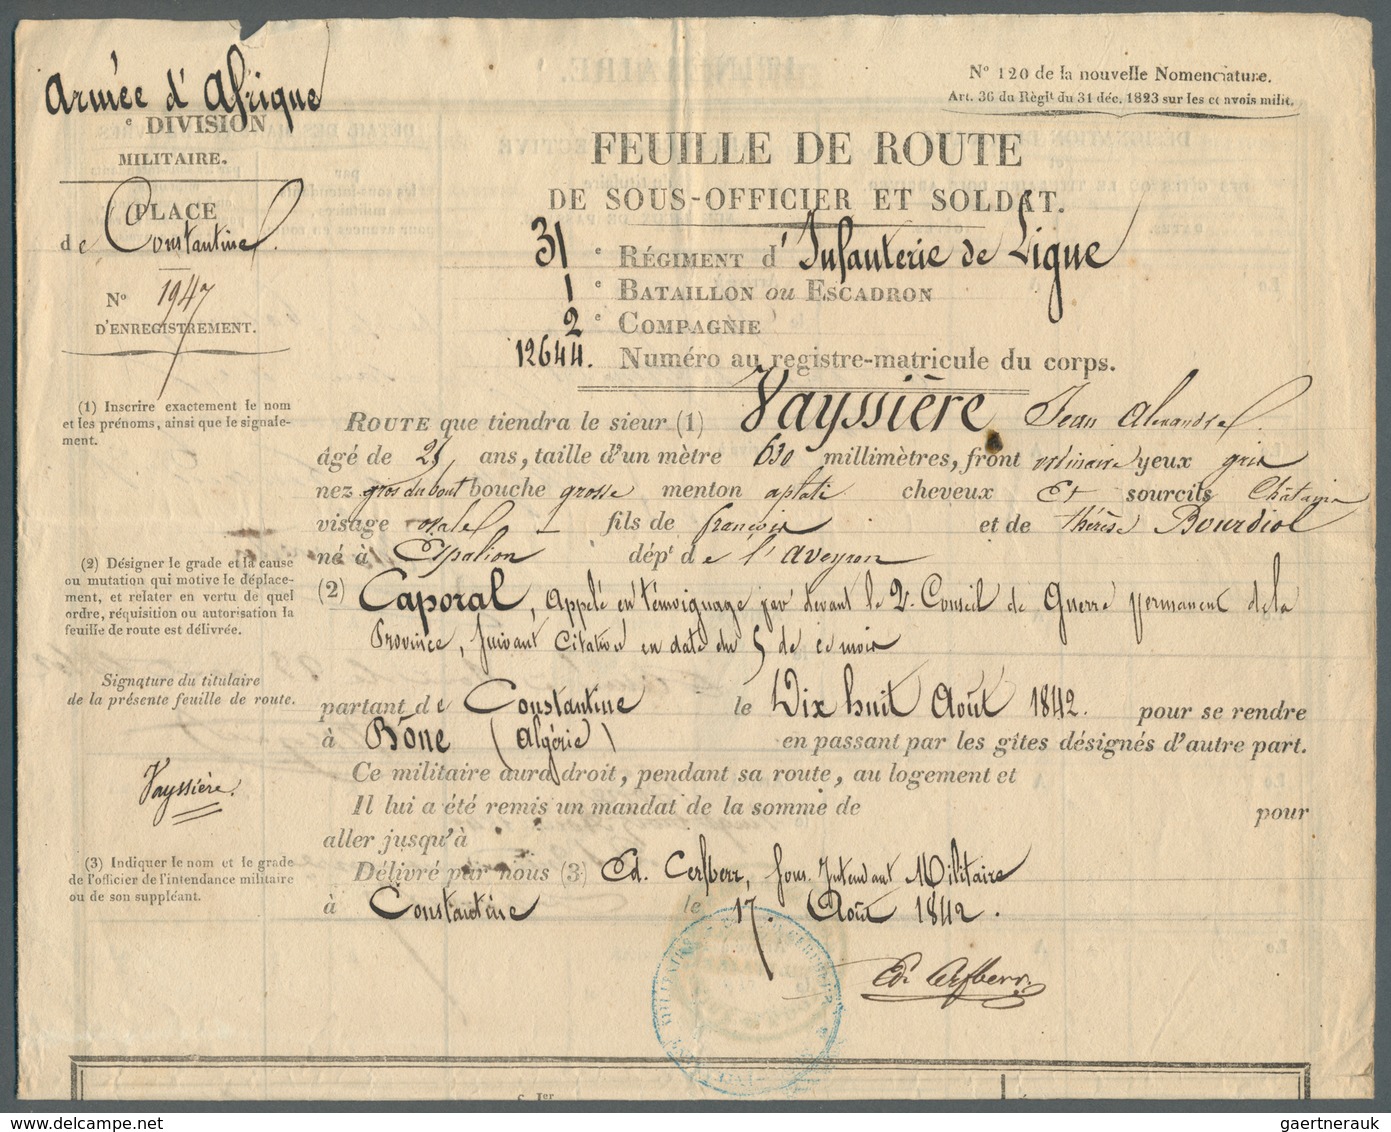 Armée d'Afrique
e DIVISION
MILITAIRE.
PLACE
de Constantine
N° 1947
D'ENREGISTREMENT.
(1) Inscrire exactement le nom
et les prénoms, ainsi que le signale-
ment.
(2) Désigner le grade et la cause
ou mutation qui motive le déplace-
ment, et relater en vertu de quel
ordre, réquisition ou autorisation la
feuille de route est délivrée.
Signature du titulaire
de la présente feuille de route.
Vayssière.
(3) Indiquer le nom et le grade
de l'officier de l'intendance militaire
ou de son suppléant.
N° 120 de la nouvelle Nomenclature.
Art. 36 du Régl.t du 31 déc. 1823 sur les convois milit.
FEUILLE DE ROUTE
DE SOUS-OFFICIER ET SOLDAT.
31 e RÉGIMENT d'Infanterie de Ligne
1 e BATAILLON ou ESCADRON
2 e COMPAGNIE
12644. Numéro au registre-matricule du corps.
ROUTE que tiendra le sieur (1) Vayssière Jean Alexandre
âgé de ans, taille d'un mètre 630 millimètres, front ordinaire yeux gris
nez gros du bout bouche grosse menton aplati cheveux et sourcils Châtains
visage ovale fils de françois et de thérèse Bourdiol
né à Espalion dép.t de l'Aveyron
(2) Caporal, Appelé en témoignage par devant le 2e Conseil de Guerre permanent de la
Province, suivant citation en date du 5 de ce mois
partant de Constantine le Dix huit Août 1842. pour se rendre
à Bône (Algérie) en passant par les gîtes désignés d'autre part.
Ce militaire aura droit, pendant sa route, au logement et
Il lui a été remis un mandat de la somme de pour
aller jusqu'à
Délivré par nous (3) Ed. Cerfberr, Sous Intendant Militaire
à Constantine le 17. Août 1842.
Ed. Cerfberr
gaertnerauk